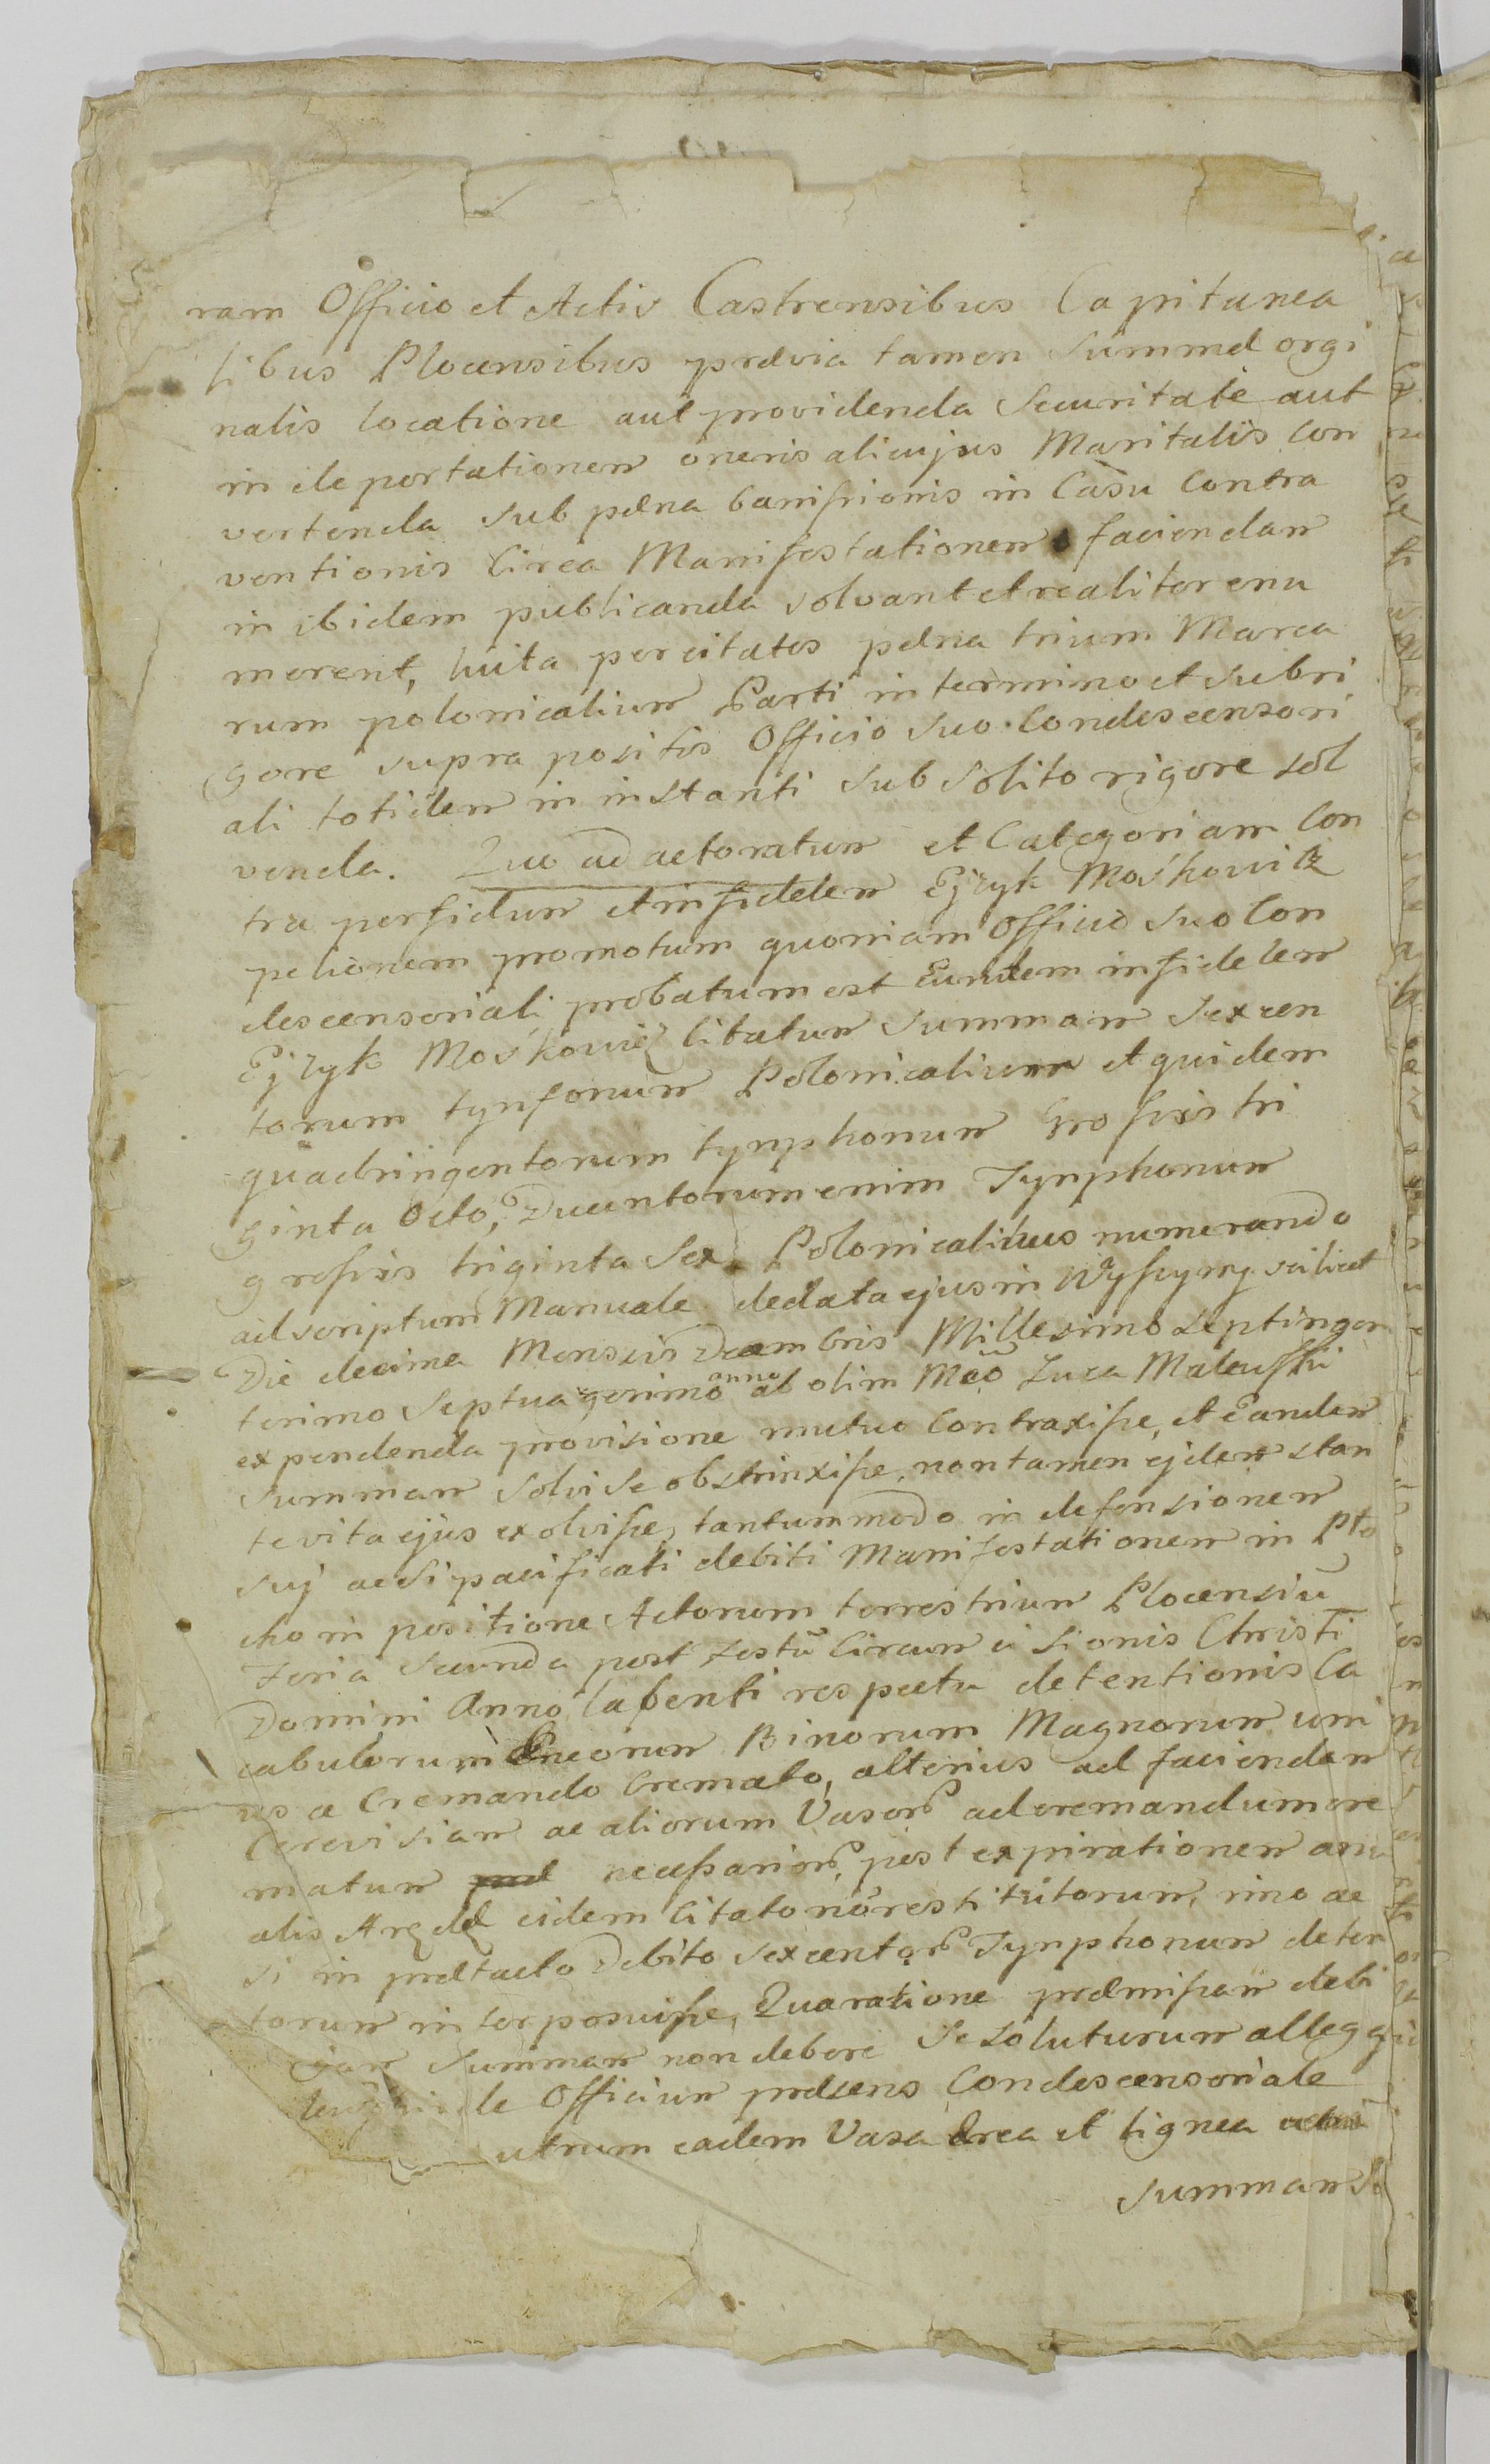 ram Officio et Actis Castrensibus Capitanea
libus Plocensibus prævia tamen Summæ orgi
nalis locatione aut providenda Securitate aut
in deportationem oneris alicujus Maritalis con
vertenda sub pæna banissionis in Casu Contra
ventionis Circa Manifestationem faciendam
in ibidem publicanda solvant et realiter enu
merent, luita pereitates pæna trium Marca
rum polonicalium Parti in termino et sub ri
gore supra positis Officio suo Condescensori
ali totidem in instanti sub solito rigore sol
venda. Quo ad actoratum et Categoriam Con
tra perfidum et infidelem Ejzyk Moskowitz
petionem promotum quoniam Officio suo Con
descensoriali probatum est Eundem infidelem
Ejzyk Moskowicz Citatum Summam Sexcen
torum tynfonum Polonicalium et quidem
quadringentorum tynphonum Grossis tri
ginta Octo, Ducentorum enim Tynphonum
grossis triginta Sex Polonicalibus numerando
ad scriptum Manuale de data ejus in Wyszyny scilicet
Die decima Mensis Decembris Millesimo septingen
tesimo Septuagesimo anno ab olim Mco Luca Maleuski
expendenda provisione mutuo Contraxisse, et Eandem
Summam solvi se obstrinxisse, non tamen ejdem stan
te vita ejus exolvisse, tantummodo in defensionem
suj ac si pacificati debiti Manifestationem in Plo
cko in positione Actorum terrestrium Plocensiū
Feria Secunda post Festū Circumcisionis Christi
Domini Anno labenti respectu detentionis Ca
cabulorum Æneorum Binorum Magnorum uni
us a Cremando Cremato, alterius ad faciendam
Cerevisiam ac aliorum Vasorū ad cremandum cre
matum necessariorū, post expirationem annu
alis Arędę eidem Citato nō restitutorum, imo ac
si in prætacto Debito sexcentorū Tynphonum deten
torum interposuisse, Qua ratione præmissam debi
Summam non debere se soluturum allegg
Officium præsens Condescensoriale
utrum eadem Vasa Ærea et lignea
Summam